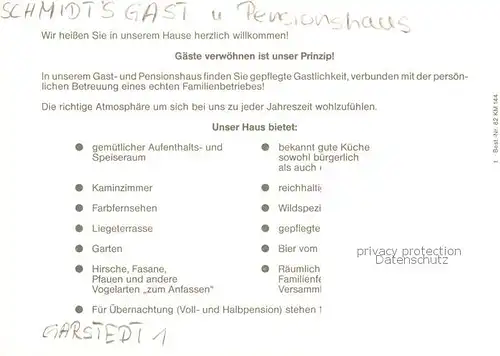 SCHMIDT'S GAST u Pensionshaus
Wir heißen Sie in unserem Hause herzlich willkommen!
Gäste verwöhnen ist unser Prinzip!
In unserem Gast- und Pensionshaus finden Sie gepflegte Gastlichkeit, verbunden mit der persön-
lichen Betreuung eines echten Familienbetriebes!
Die richtige Atmosphäre um sich bei uns zu jeder Jahreszeit wohlzufühlen.
Unser Haus bietet:
gemütlicher Aufenthalts- und
Speiseraum
Kaminzimmer
Farbfernsehen
Liegeterrasse
Garten
Hirsche, Fasane,
Pfauen und andere
Vogelarten „zum Anfassen"
bekannt gute Küche
sowohl bürgerlich
als auch
reichhaltig
Wildspezi
gepflegte
Bier vom
Räumlich
Familienfe
Versamml
Für Übernachtung (Voll- und Halbpension) stehen
GARSTEDT 1
privacy protection
Datenschutz
Best.-Nr. 62 KM 144